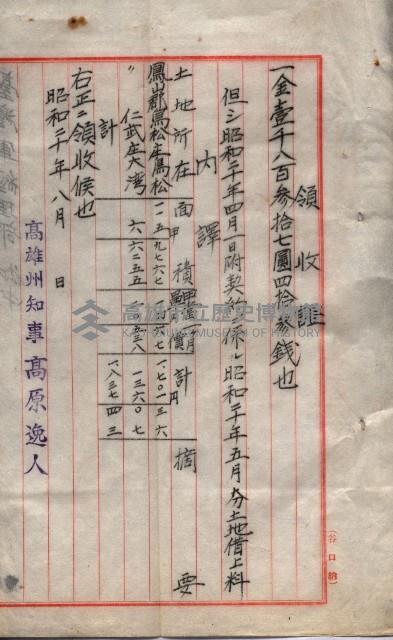 領收證
一金壹千八百參拾七圓四拾參錢也
但シ昭和二十年四月一日附契約ニ係ル昭和二十年五月分土地借上料
內譯
土地所在 面積 單價 計 摘要
鳳山郡鳥松庄鳥松 一一五.九七六七 一.七〇一三六
〃 仁武庄大湾 六.六二五五 一三六〇七
計 一.八三七四三
右正ニ領收候也
昭和二十年八月 日
高雄州知事 高原逸人
高雄市立歷史博物館
KAOHSIUNG MUSEUM OF HISTORY
(谷口納)